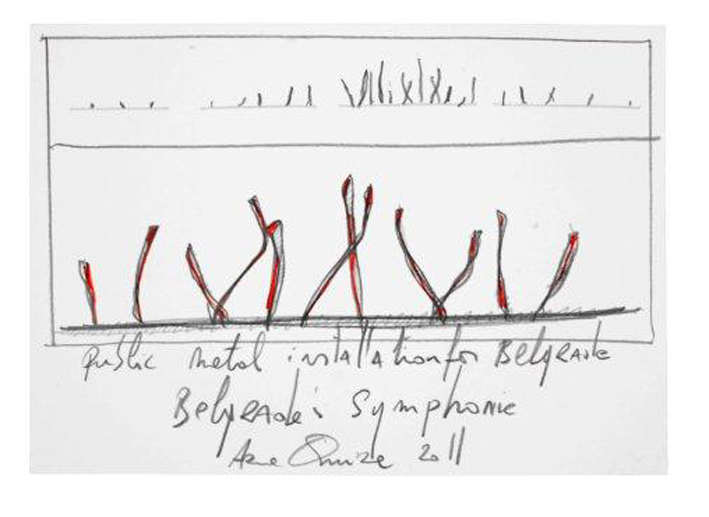 public metal installation for Belgrade
Belgrade's Symphonie
2011